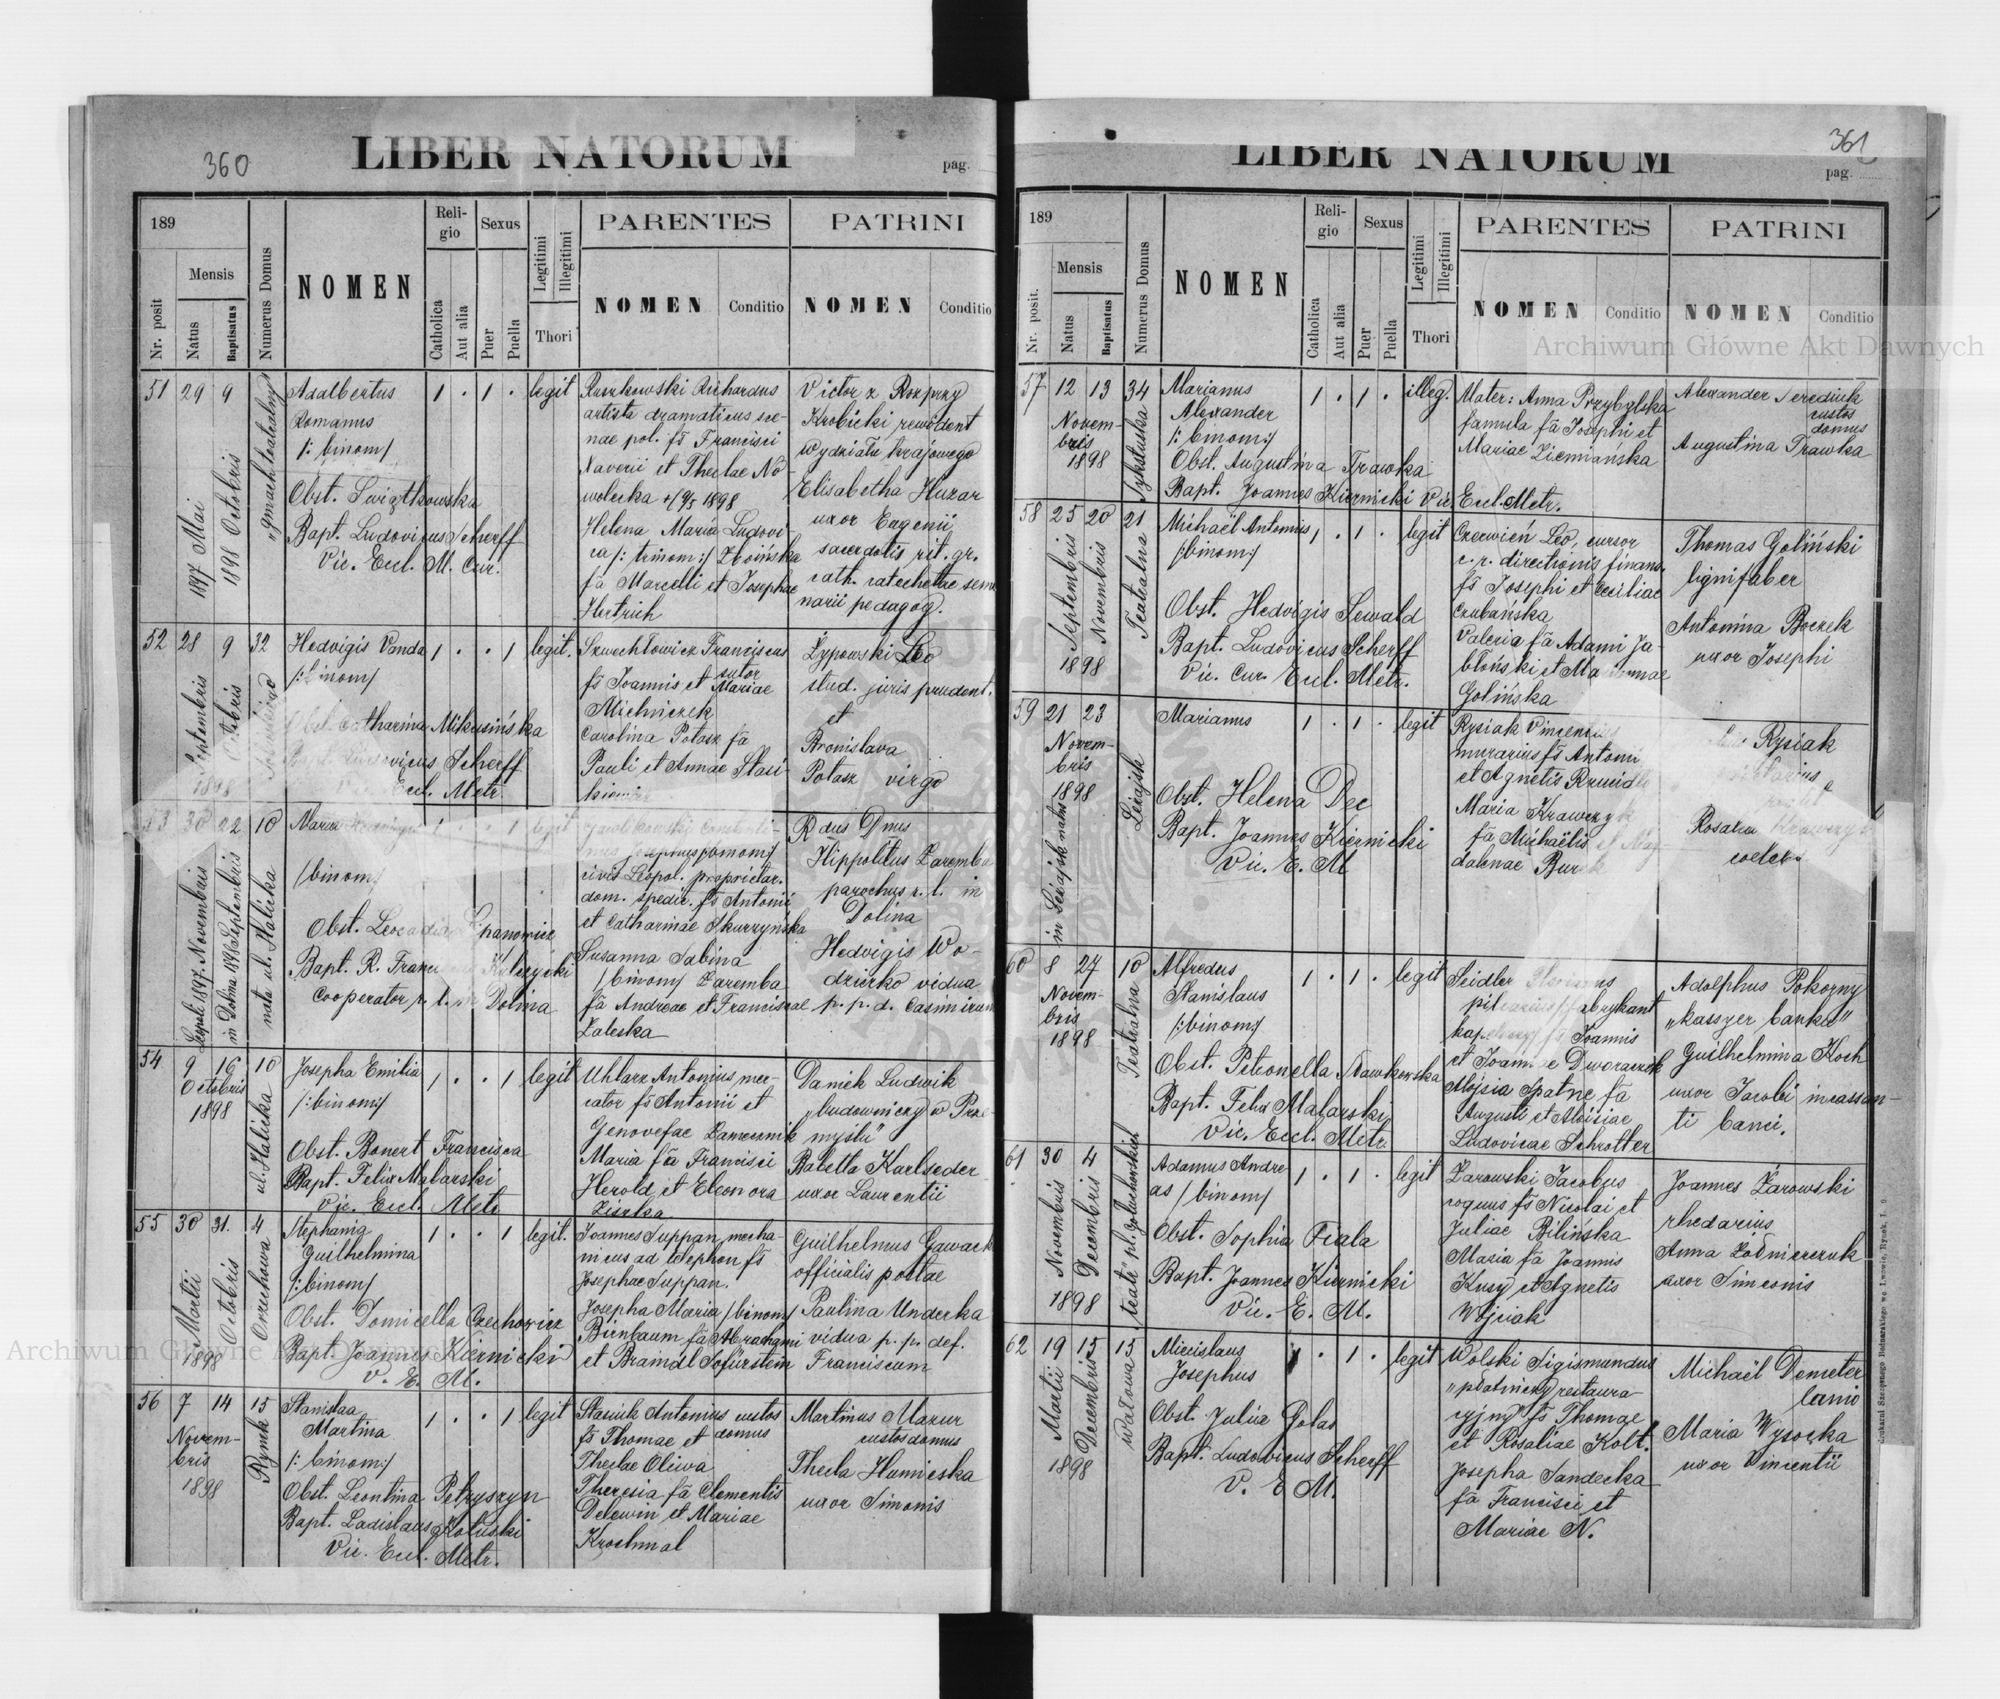 360
LIBER NATORUM
pag.
189
Mensis
Nr. posit
Natus
Baptisatus
Numerus Domus
NOMEN
Reli-
gio
Catholica
Aut alia
Sexus
Puer
Puella
Legitimi
Illegitimi
Thori
PARENTES
NOMEN
Conditio
PATRINI
NOMEN
Conditio
51 29 9
Mai 1897
Octobris 1898
Adalbertus
Romanus
/: binom/
Obst. Swiątkowska
Bapt. Ludovicus Scherff
Vic. Eccl. M. Cur.
1 . 1 . legit
Ruszkowski Richardus
artista dramaticus sce-
nae pol. fs Francisci
Xaverii et Theclae No
wolecka
Helena Maria Ludovi
ca /: trinom:/ Zboińska
fa Marcelli et Josephae
Hertrich
Victor z Rozprzy
Krobicki rewident
wydziału krajowego
Elisabetha Huzar
uxor Eugenii
sacerdotis rit. gr.
cath. catechetae semi
narii pedagog.
52 28 9 32
Septembris
Octobris
1898
Hedvigis Vanda
/: binom/
Obst. Catharina Mikusińska
Bapt. Ludovicus Scherff
Vic. Eccl. Metr.
1 . . 1 legit.
Szwechłowicz Franciscus
sutor
fs Joannis et Mariae
Michniczek
Carolina Potasz fa
Pauli et Annae Stasi
Łypowski Leo
stud. juris prudent.
et
Bronislava
Potasz virgo
53 30 22 10
Leopoli 1897. Novembris
in Dolina 1898 Septembris
nata ul. Halicka
Maria
/binom/
Obst. Leocadia
Bapt. R. Franc
Cooperator r. l. in Dolina
1 . . 1 legit
civis Leopol. proprietar.
dom. spedit. fs Antonii
et Catharinae Skurzyńska
Susanna Sabina
/binom/ Zaremba
fa Andreae et Franciscae
Zaleska
Rdus Dnus
Hippolitus Zaremba
parochus r. l. in
Dolina
Hedvigis Wo-
dzicko vidua
p. p. d. Casimirum
54 9 16 10
Octobris
1898
ul. Halicka
Josepha Emilia
/: binom:/
Obst. Bonert Francisca
Bapt. Felix Malarski
Vic. Eccl. Metr.
1 . . 1 legit
Uhlarz Antonius mer-
cator fs Antonii et
Genovefae Zamecznik
Maria fa Francisci
Herold et Eleonora
Daniek Ludwik
„budowniczy w Prze-
myślu"
Babetta Karlseder
uxor Laurentii
55 30 31. 4
Martii
Octobris
1898
Orzechowa
Stephania
Guilhelmina
/: binom/
Obst. Domicella Czechowicz
Bapt. Joannes Kiernicki
V. E. M.
1 . . 1 legit.
Joannes Suppan mecha-
nicus ad telephon fs
Josephae Suppan.
Josepha Maria /binom/
Birnbaum fa Abrachami
et Braindl Sofürstem
Guilhelmus Gawack
officialis postae
Paulina Underka
vidua p. p. def.
Franciscum
56 7 14 15
Novem-
bris
1898
Rynek
Stanislaa
Martina
/: binom:/
Obst. Leontina Petryszyn
Bapt. Ladislaus Kotulski
Vic. Eccl. Metr.
1 . . 1 legit
Stasiuk Antonius custos
domus
fs Thomae et
Theclae Oliwa
Theresia fa Clementis
Delewin et Mariae
Krochmal
Martinus Mazur
custos domus
Thecla Humieska
uxor Simonis
361
LIBER NATORUM
pag.
189
Mensis
Nr. posit.
Natus
Baptisatus
Numerus Domus
NOMEN
Reli-
gio
Catholica
Aut alia
Sexus
Puer
Puella
Legitimi
Illegitimi
Thori
PARENTES
NOMEN
Conditio
PATRINI
NOMEN
Conditio
Archiwum Główne Akt Dawnych
57 12 13 34
Novem-
bris
1898
Sykstuska
Marianus
Alexander
/: binom:/
Obst. Augustina Trawka
Bapt. Joannes Kiernicki Vic. Eccl. Metr.
1 . 1 . illeg.
Mater: Anna Przybylska
famula fa Josephi et
Mariae Ziemiańska
Alexander Serediuk
custos
domus
Augustina Trawka
58 25 20 21
Septembris
Novembris
1898
Teatralna
Michaël Antonius
/: binom:/
Obst. Hedvigis Sewald
Bapt. Ludovicus Scherff
Vic. Cur. Eccl. Metr.
1 . 1 . legit
Czerwień Leo, cursor
c. r. directionis finans.
fs Josephi et Ceciliae
Czubańska
Valeria fa Adami Ja-
błoński et Ma
Golińska
Thomas Goliński
lignifaber
Antonina Boczek
uxor Josephi
59 21 23
Novem-
bris
1898
in Leżajsk natus
Leżajsk
Marianus
Obst. Helena Dec
Bapt. Joannes Kiernicki
Vic. E. M
1 . 1 . legit
Rysiak Vincentius
murarius fs Antonii
et Agnetis
Maria Krawczyk
fa Michaëlis et Mag-
dalenae
Rysiak
Rosalia Krawczyk
coelebs
60 8 27 10
Novem-
bris
1898
Teatralna
Alfredus
Stanislaus
/: binom:/
Obst. Petronella Nawkowska
Bapt. Felix Malarski
Vic. Eccl. Metr.
1 . 1 . legit
Seidler
fabrykant
fs Joannis
et Joannae Dworaczek
Aloisia Spatne fa
Augusti et Aloisiae
Ludovicae Schrotter
Adolphus Pokorny
„kassyer banku"
Guilhelmina Koch
uxor Jacobi incassan-
ti banci.
61 30 4
Novembris
Decembris
1898
teatr pl. Gołuchowskich
Adamus Andre
as /binom/
Obst. Sophia Fiala
Bapt. Joannes Kiernicki
Vic. E. M.
1 . 1 . legit
Żarowski Jacobus
coquus fs Nicolai et
Juliae Bilińska
Maria fa Joannis
Kusy et Agnetis
Wojciak
Joannes Żarowski
rhedarius
Anna Żołnierczuk
uxor Simeonis
62 19 15 15
Martii
Decembris
1898
Wałowa
Miecislaus
Josephus
Obst. Julia Golas
Bapt. Ludovicus Scherff
V. E M.
1 . 1 . legit
Wolski Sigismundus
„płatniczy restaura-
cyjny" fs Thomae
et Rosaliae Kolt.
Josepha Sandecka
fa Francisci et
Mariae N.
Michaël Demeter
lanio
Maria Wysocka
uxor Vincentii
Drukarni Szczęsnego Bednarskiego we Lwowie, Rynek, l. 9
Archiwum Główne Akt Dawnych